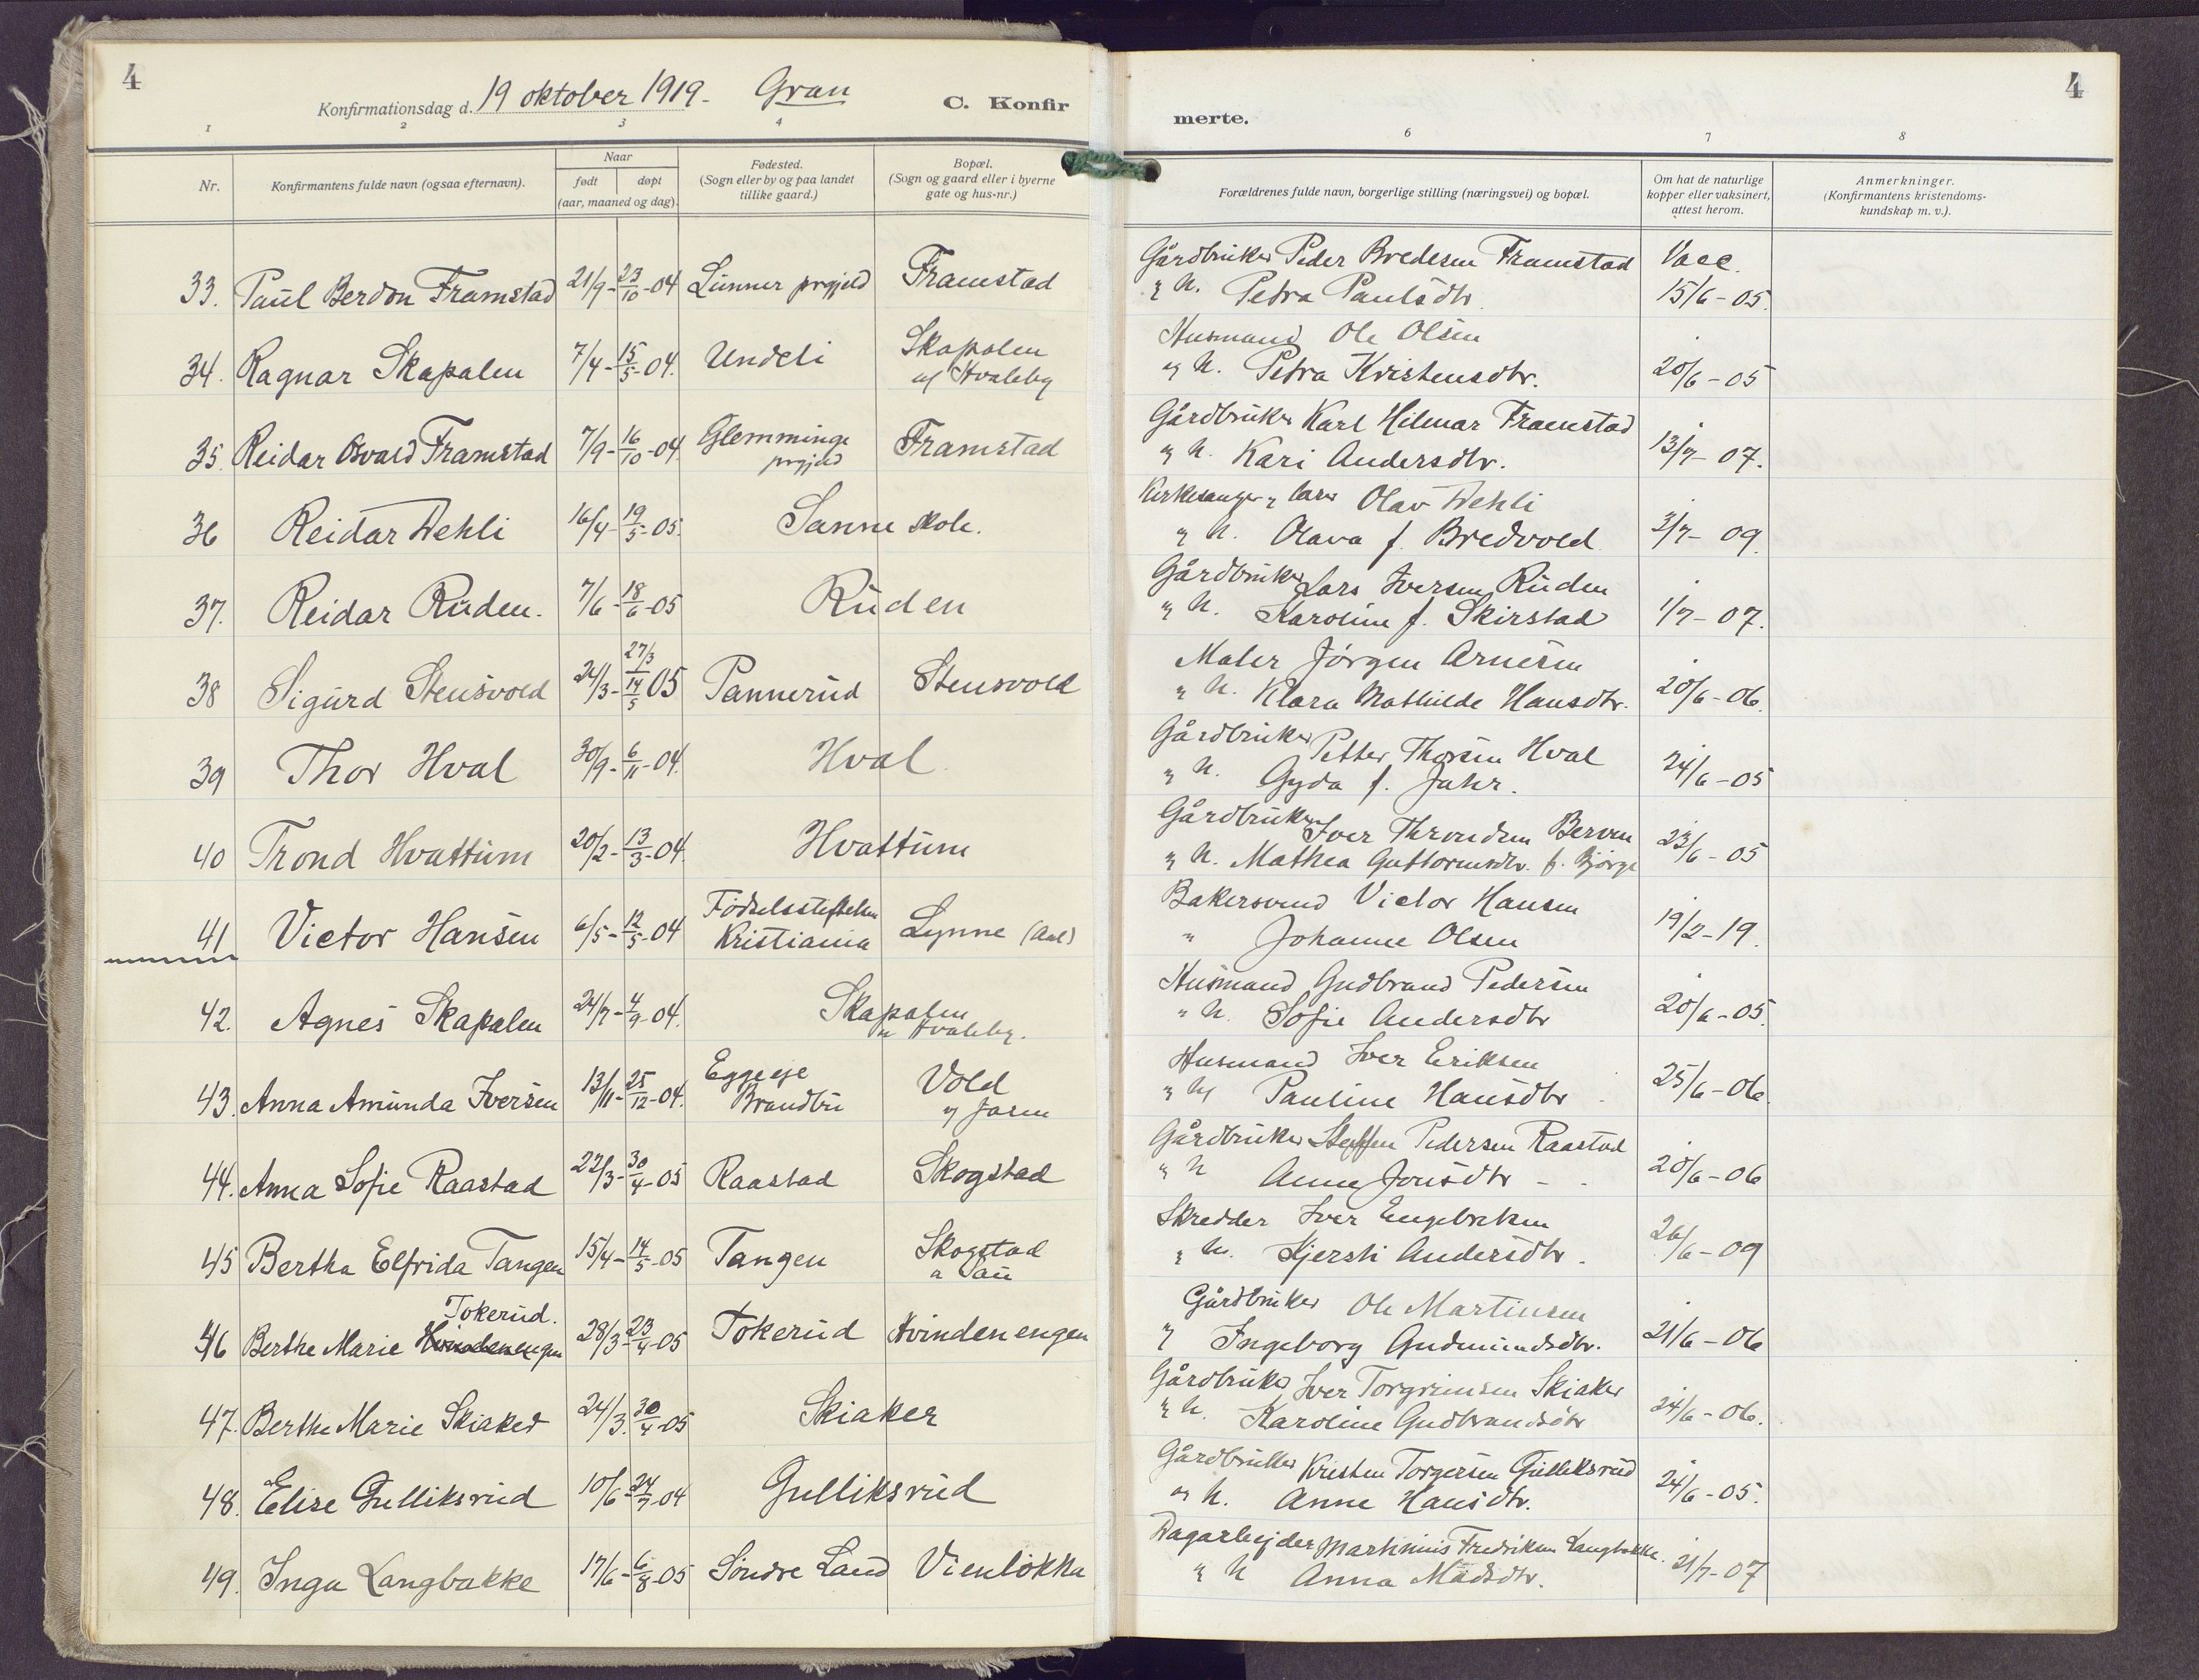 4
Konfirmationsdag d. 19 oktober 1919. Gran
C. Konfir
merte.
4
1 2 3 4
6 7 8
Nr.
Konfirmantens fulde navn (ogsaa efternavn).
Naar
født døpt
(aar, maaned og dag).
Fødested.
(Sogn eller by og paa landet
tillike gaard.)
Bopæl.
(Sogn og gaard eller i byerne
gate og hus-nr.)
Forældrenes fulde navn, borgerlige stilling (næringsvei) og bopæl.
Om hat de naturlige
kopper eller vaksinert,
attest herom.
Anmerkninger.
(Konfirmantens kristendoms-
kundskap m. v.).
33. Paul Berdon Framstad 21/9 - 23/10 - 04 Lunner prgjeld Framstad
Gårdbruker Peder Bredesen Framstad Vacc.
og h. Petra Paulsdtr. 15/6 - 05.
34. Ragnar Skapalen 7/4 - 15/5 - 04. Undeli Skapalen
u/ Hvaleby
Husmand Ole Olsen
og h. Petra Kristensdtr. 20/6 - 05
35. Reidar Osvald Framstad 7/9 - 16/10 - 04. Glemminge
prgjeld
Framstad
Gårdbruker Karl Hilmar Framstad
og h. Kari Andersdtr. 13/7 - 07.
36 Reidar Dehli 16/4 - 19/5 - 05. Sanne skole.
Kirkesanger og lærer Olav Dehli
og h. Olava f. Bredvold 3/7 - 09.
37. Reidar Ruden. 7/6 - 18/6 - 05 Ruden
Gårdbruker Lars Iversen Ruden
og h. Karoline f. Skirstad 1/7 - 07.
38 Sigurd Stensvold 24/3 - 27/3 14/5 05 Pannerud Stensvold
Maler Jørgen Arnesen
og h. Klara Mathilde Hansdtr. 20/6 - 06.
39 Thor Hval 30/9 - 6/11 - 04. Hval
Gårdbruker Petter Thorsen Hval
og h. Gyda f. Jahr. 24/6 - 05
40 Trond Hvattum 20/2 - 13/3 - 04. Hvattum
Gårdbruker Iver Throndsen Berven
og h. Mathea Guttormsdtr. f. Bjørge 23/6 - 05
41 Victor Hansen 6/5 - 12/5 - 04 Fødselsstiftelsen
Kristiania Lynne (Aal)
Bakersvend Victor Hansen
" Johanne Olsen 19/2 - 19.
42. Agnes Skapalen 24/7 - 4/9 - 04. Skapalen
u Hvaleby.
Husmand Gudbrand Pedersen
" h. Sofie Andersdtr 20/6 - 05.
43. Anna Amunda Iversen 13/11 - 25/12 - 04. Eggeeje
Brandbu
Vold
u/ Jaren
Husmand Iver Eriksen
og h/ Pauline Hansdtr 25/6 - 06.
44. Anna Sofie Raastad 22/3 - 30/4 - 05 Raastad Skogstad
Gårdbruker Steffen Pedersen Raastad
" h Anne Jonsdtr - - 20/6 - 06
45 Bertha Elfrida Tangen 15/4 - 14/5 - 05 Tangen Skogstad
Skredder Iver Engebretsen
og h. Kjersti Andersdtr. 26/6 - 09
Tokerud.
46 Berthe Marie Hvindenengen 28/3 - 23/4 - 05 Tokerud Hvindenengen
Gårdbruker Ole Martinsen
og Ingeborg Gudmundsdtr. 21/6 - 06
47. Berthe Marie Skiaker 24/3. 30/4 - 05 Skiaker
Gårdbruker Iver Torgrimsen Skiaker
og h. Karoline Gudbrandsdtr 24/6 - 06.
48. Elise Gulliksrud 10/6 - 24/7 - 04 Gulliksrud
Gårdbruker Kristen Torgersen Gulliksrud
og h. Anne Hansdtr. 24/6 - 05.
49. Inga Langbakke 17/6 - 6/8 - 05 Søndre Land Vienløkka
Dagarbejder Martinius Fredriksen Langbakke.
" h Anna Madsdtr. 21/7 - 07